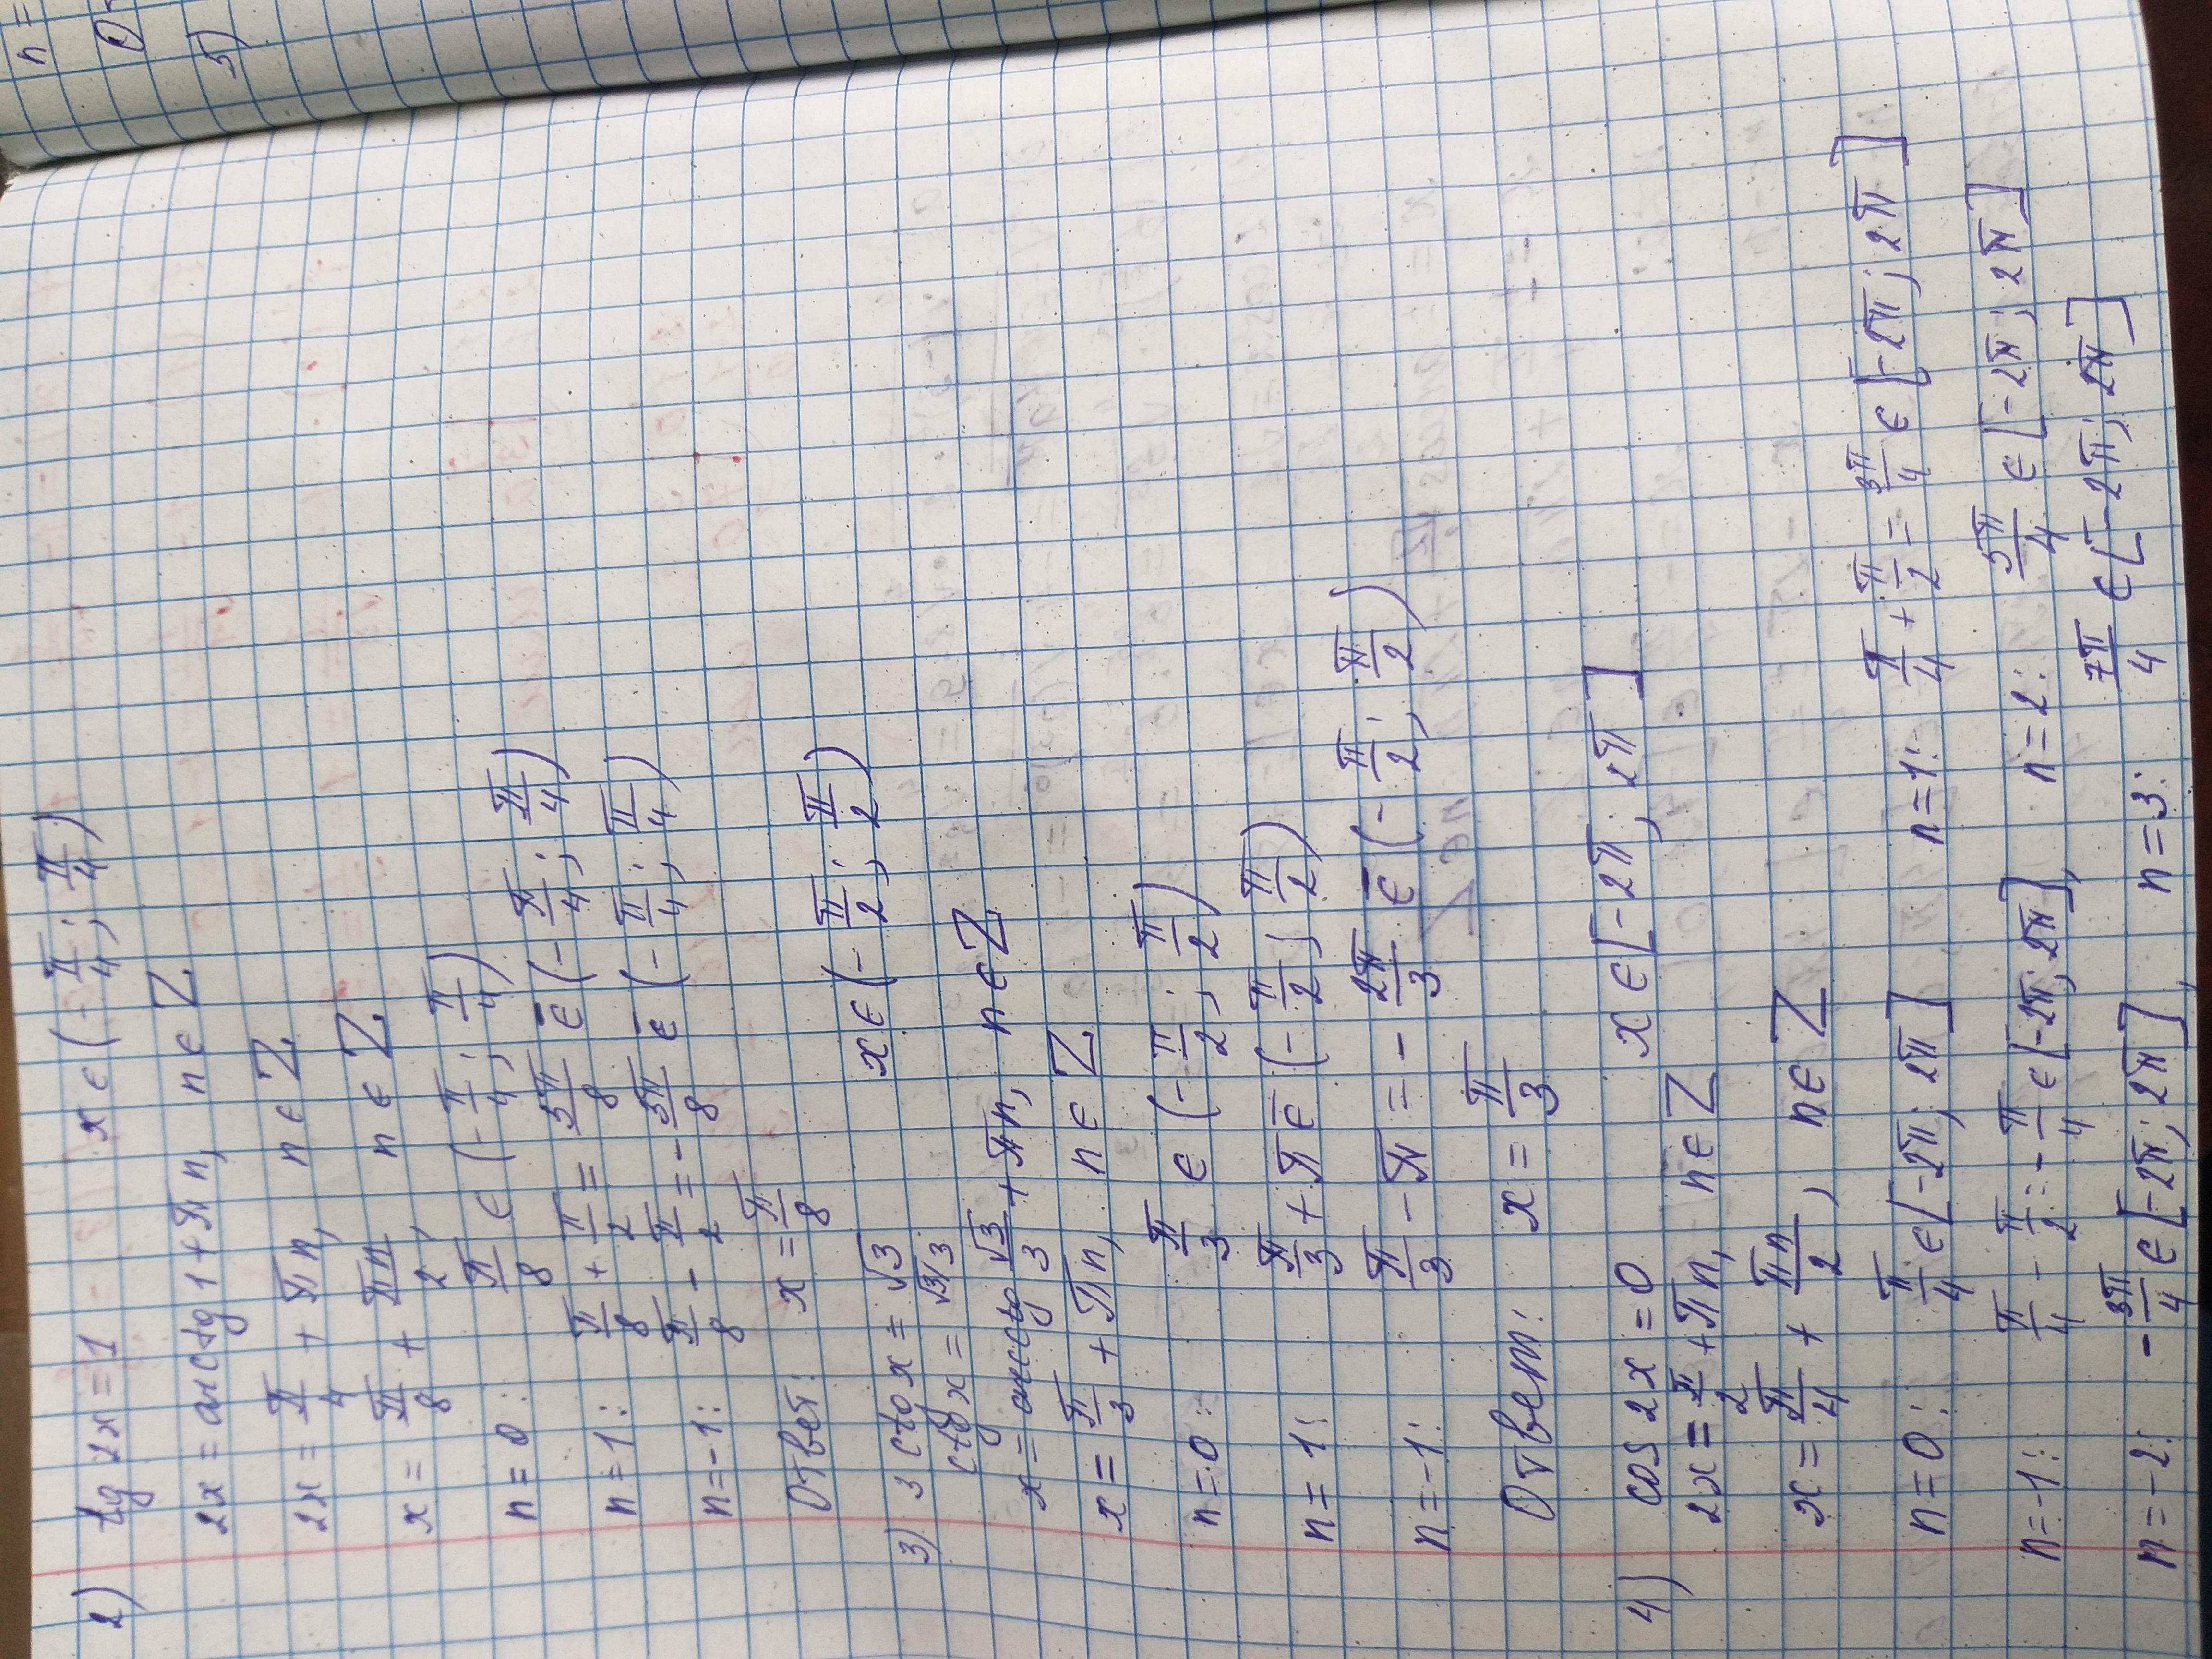 2) tg 2x = 1 x ∈ (-π/4; π/4)
2x = arctg 1 + πn, n ∈ Z
2x = π/4 + πn, n ∈ Z
x = π/8 + πn/2, n ∈ Z
n = 0: π/8 ∈ (-π/4; π/4)
n = 1: π/8 + π/2 = 5π/8 ∉ (-π/4; π/4)
n = -1: π/8 - π/2 = -3π/8 ∉ (-π/4; π/4)
Ответ: x = π/8
3) 3 ctg x = √3 x ∈ (-π/2; π/2)
ctg x = √3/3
x = arcctg √3/3 + πn, n ∈ Z
x = π/3 + πn, n ∈ Z
n = 0: π/3 ∈ (-π/2; π/2)
n = 1: π/3 + π ∉ (-π/2; π/2)
n = -1: π/3 - π = -2π/3 ∉ (-π/2; π/2)
Ответ: x = π/3
4) cos 2x = 0 x ∈ [-2π; 2π]
2x = π/2 + πn, n ∈ Z
x = π/4 + πn/2, n ∈ Z
n = 0: π/4 ∈ [-2π; 2π] n = 1: π/4 + π/2 = 3π/4 ∈ [-2π; 2π]
n = -1: π/4 - π/2 = -π/4 ∈ [-2π; 2π], n = 2: 5π/4 ∈ [-2π; 2π]
n = -2: -3π/4 ∈ [-2π; 2π], n = 3: 7π/4 ∈ [-2π; 2π]
n =
5)